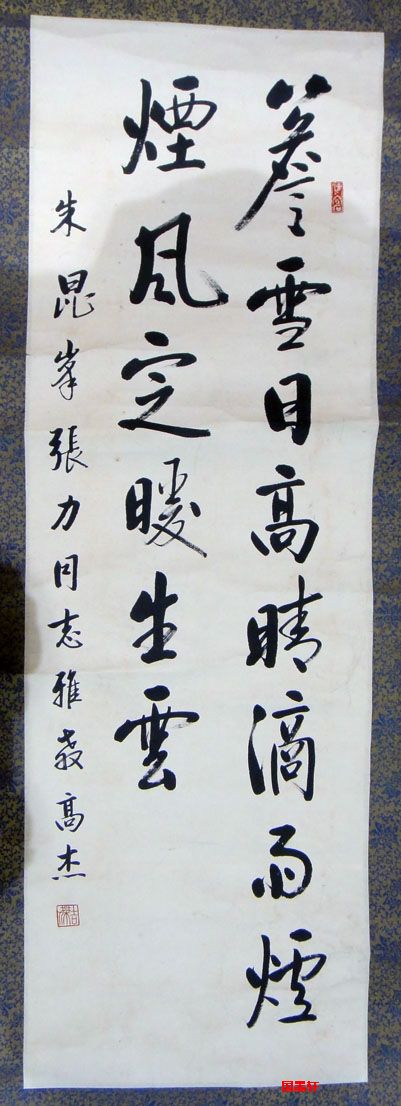 簷雪日高晴滴雨爐
煙風定暖生雲
朱昆峯張力同志雅教高杰